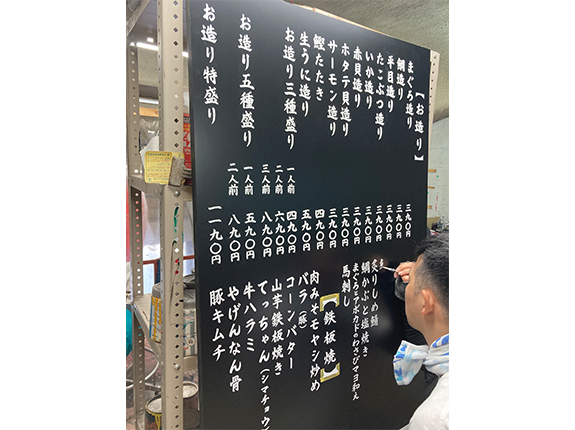 【お造り】
まぐろ造り 三九〇円
鯛造り 三九〇円
平目造り 三九〇円
たこぶつ造り 三九〇円
いか造り 三九〇円
赤貝造り 三九〇円
ホタテ貝造り 三九〇円
サーモン造り 三九〇円
鰹たたき 四九〇円
生うに造り 五九〇円
お造り三種盛り 一人前 四九〇円
二人前 六九〇円
三人前 八九〇円
お造り五種盛り 一人前 五九〇円
二人前 八九〇円
お造り特盛り 一一九〇円
炙りしめ鯖
鯛かぶと塩焼き
まぐろとアボカドのわさびマヨ和え
馬刺し
鉄板焼
肉みそモヤシ炒め
バラ(豚)
コーンバター
山芋鉄板焼き
てっちゃん(シマチョウ)
牛ハラミ
やげんなん骨
豚キムチ